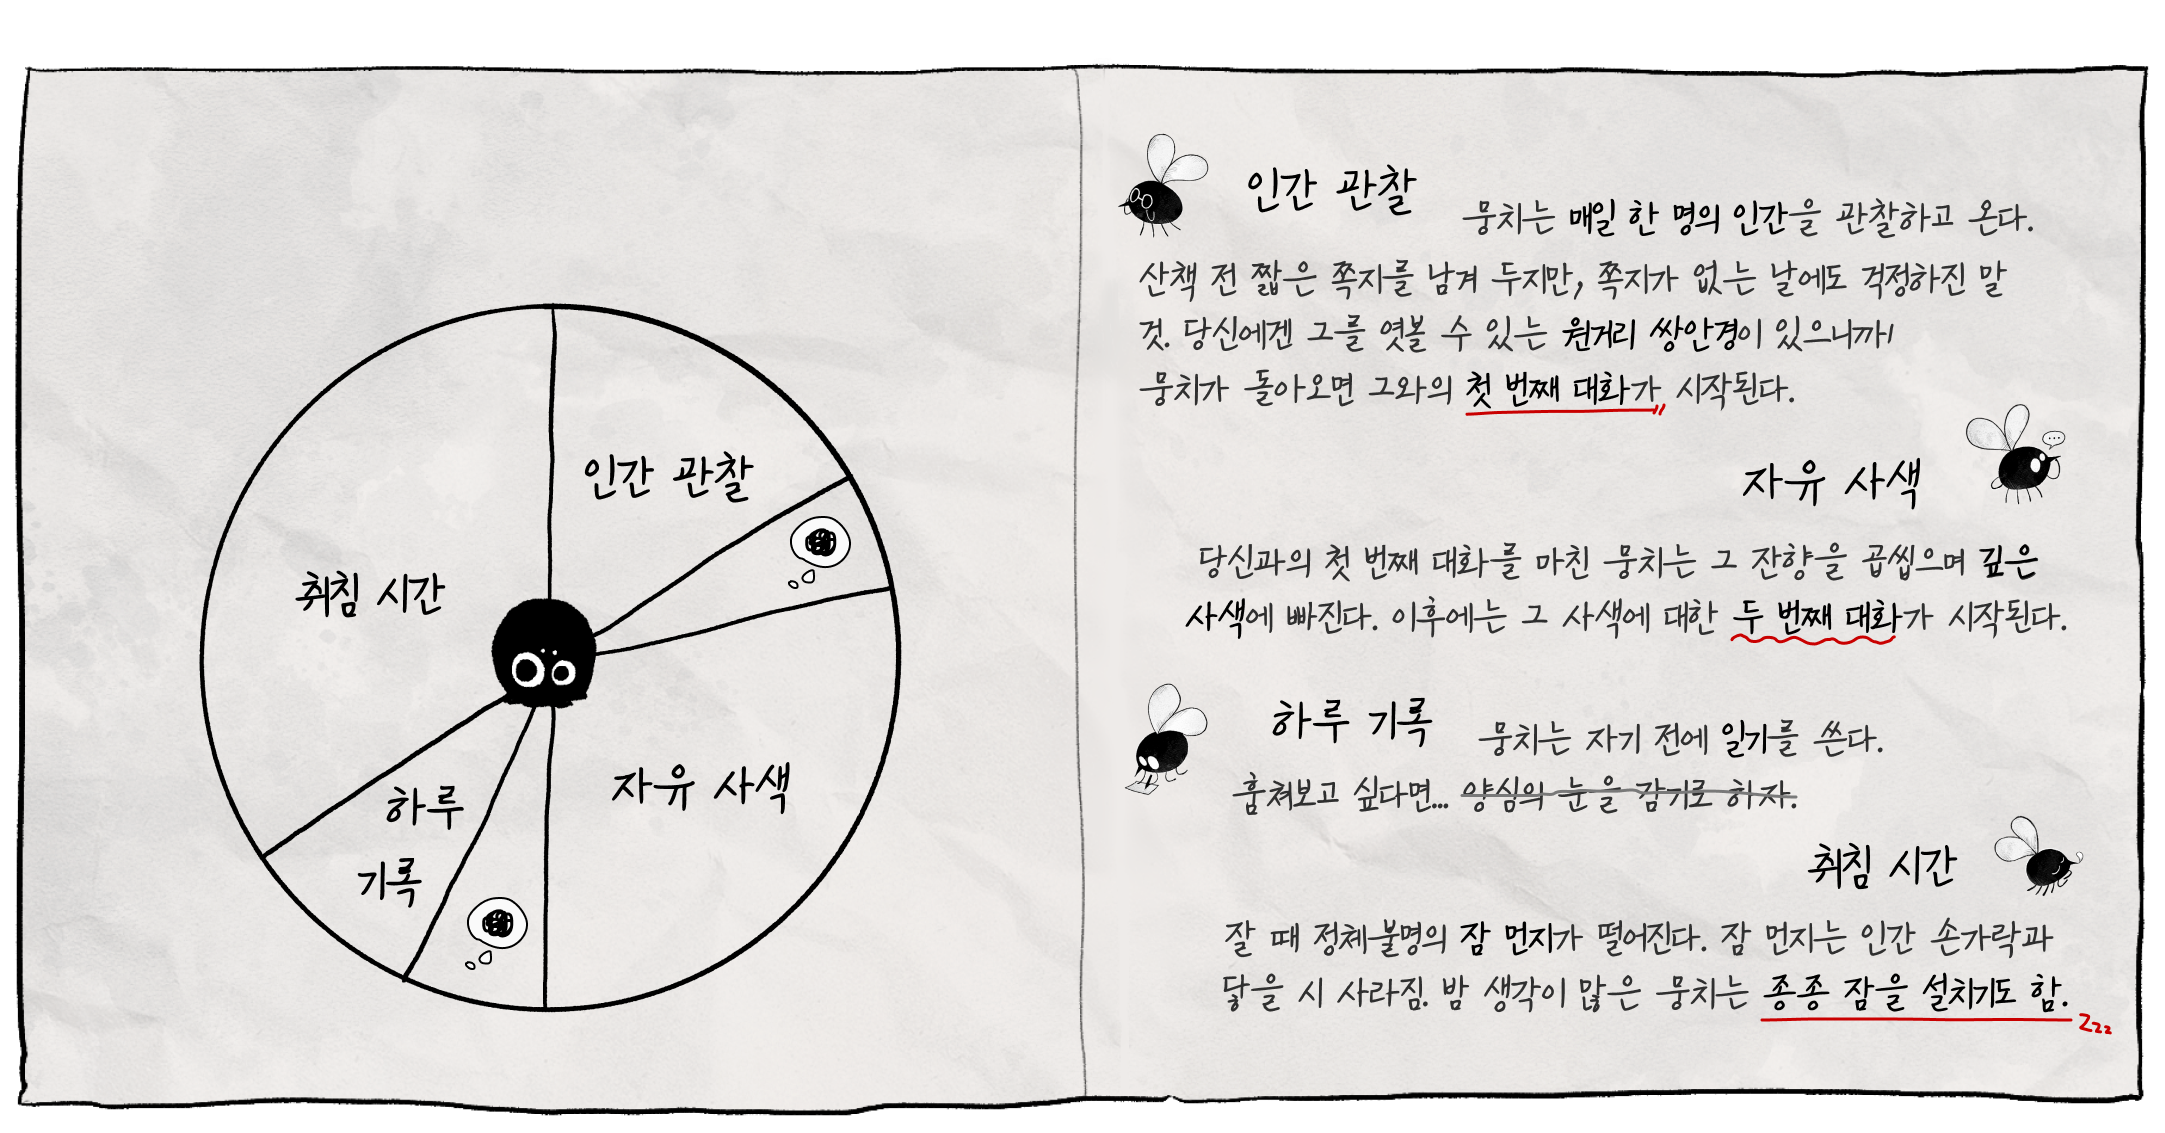 인간 관찰
취침 시간
자유 사색
하루
기록
인간 관찰
뭉치는 매일 한 명의 인간을 관찰하고 온다.
산책 전 짧은 쪽지를 남겨 두지만, 쪽지가 없는 날에도 걱정하진 말
것. 당신에겐 그를 엿볼 수 있는 원거리 쌍안경이 있으니까!
뭉치가 돌아오면 그와의 첫 번째 대화가 시작된다.
자유 사색
당신과의 첫 번째 대화를 마친 뭉치는 그 잔향을 곱씹으며 깊은
사색에 빠진다. 이후에는 그 사색에 대한 두 번째 대화가 시작된다.
하루 기록
뭉치는 자기 전에 일기를 쓴다.
훔쳐보고 싶다면... 양심의 눈을 감기로 하자.
취침 시간
잘 때 정체불명의 잠 먼지가 떨어진다. 잠 먼지는 인간 손가락과
닿을 시 사라짐. 밤 생각이 많은 뭉치는 종종 잠을 설치기도 함.
zzz